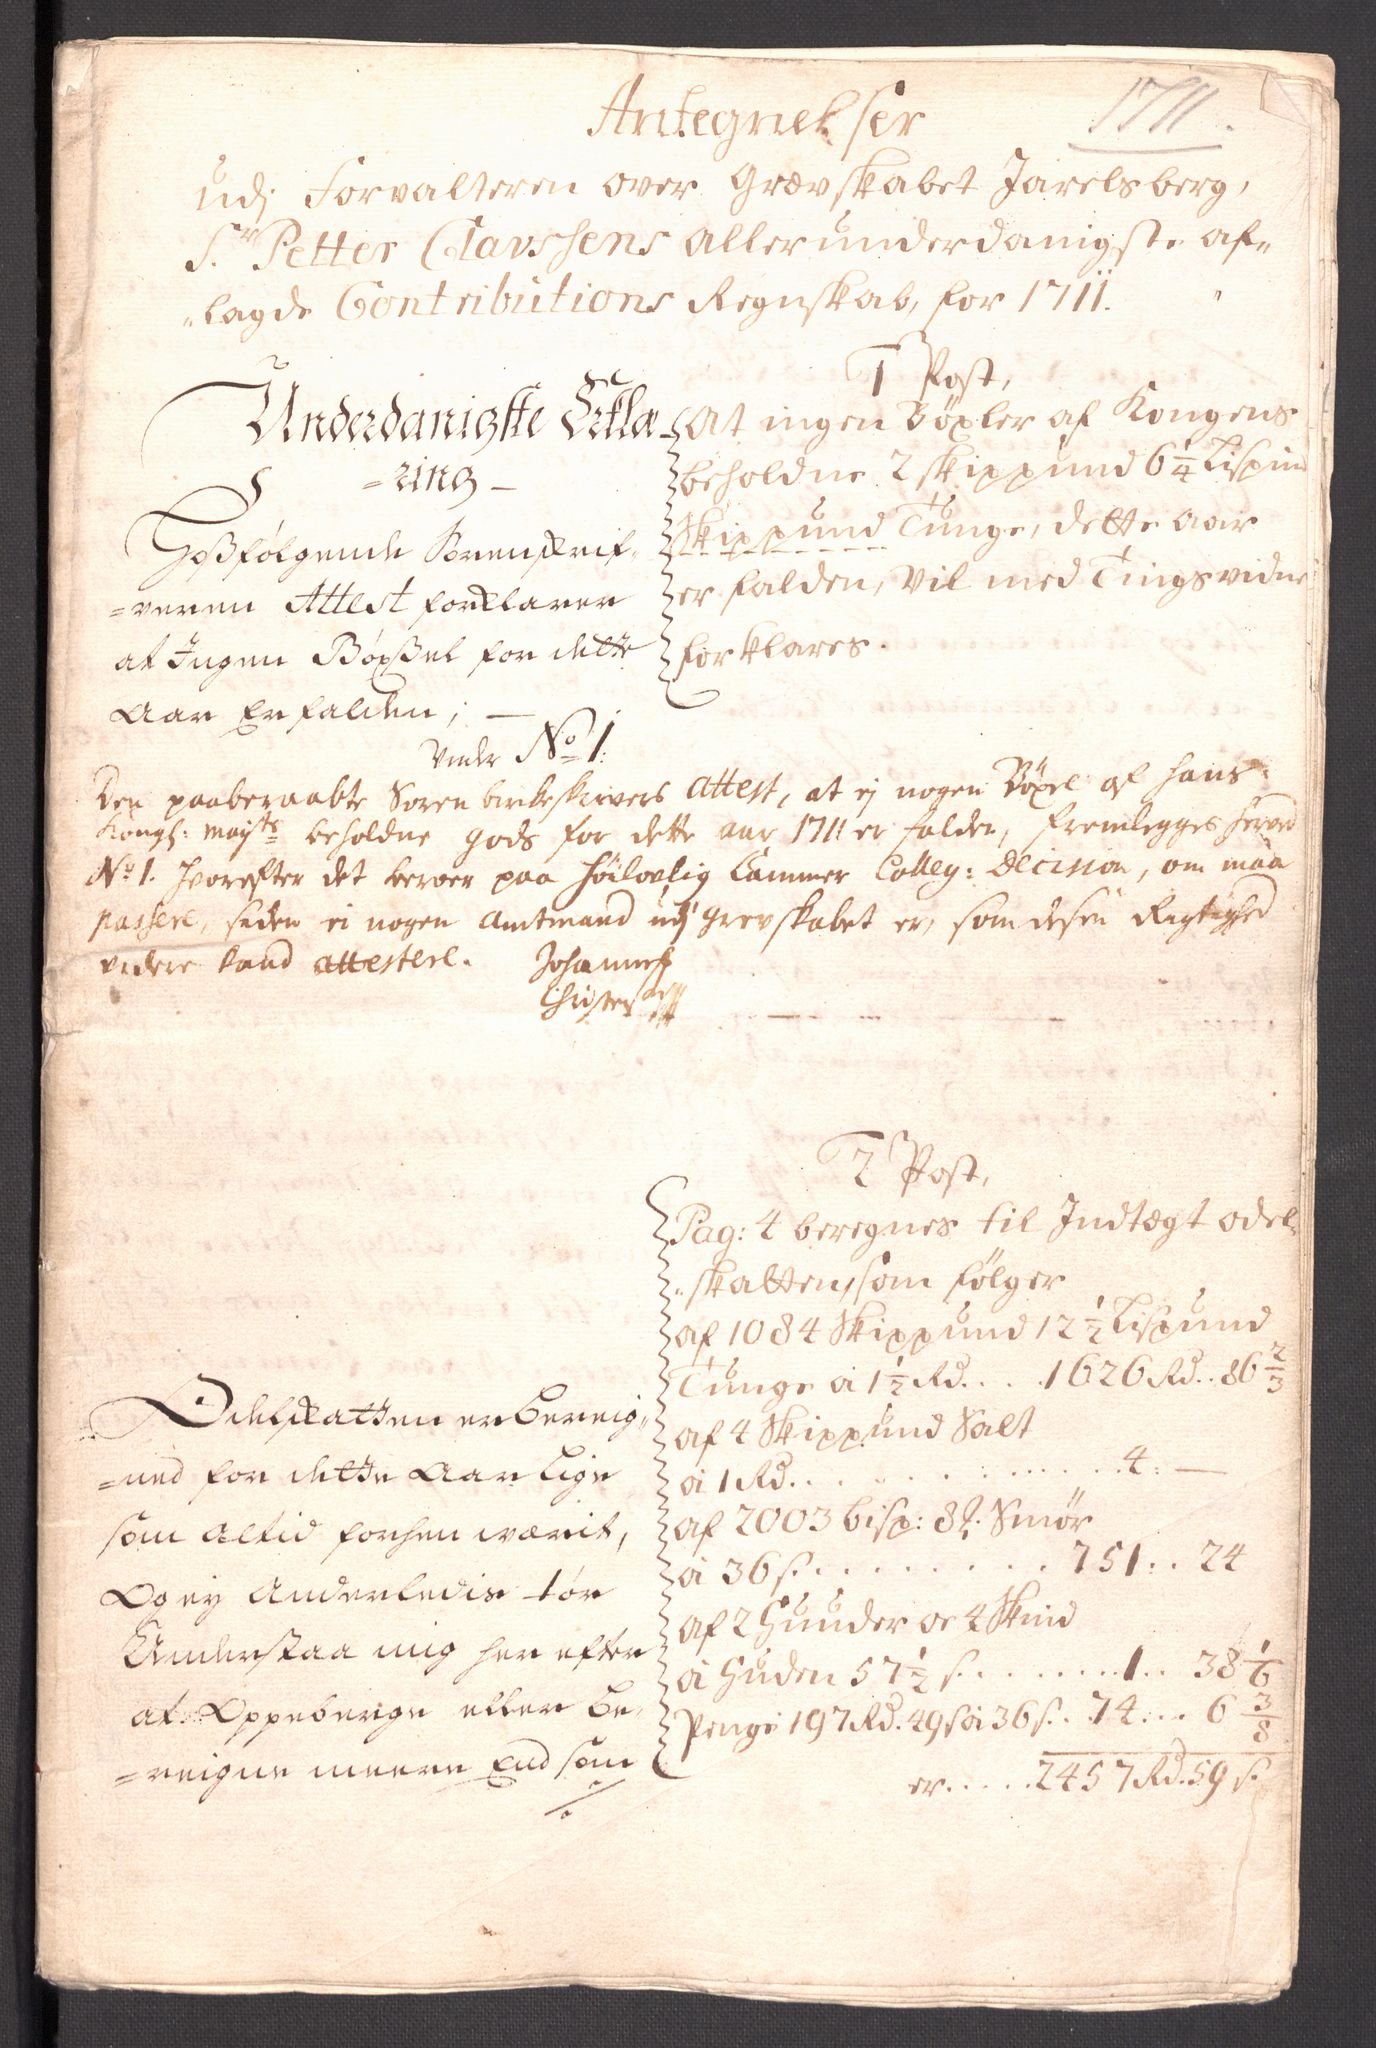 1711.
Antegnelser
udj Forvalteren over Grævskabet Jarelsberg,
Sr. Petter Clavshens allerunderdanigste af-
-lagde Contributions Regnskab, for 1711.
1 Post,
At ingen Böxler af Kongens
beholdne 2 skippund 6 1/4 Lispund
Skippund Tunge, dette aar
er falden, vil med Tingsvidne
forklares.
Underdanigste Erklæ-
-ring-
Hosfølgende Sorenskrif-
-veren Attest forklarer
at Ingen Böxsel for dette
Aar Er falden; —
Under No 1:
Den paaberaabte Soren birkeskrivers attest, at ej nogen Böxel af hans
Kongl: mayts beholdne gods for dette aar 1711 er falden, fremlegges herved
No 1. hvorefter det beroer paa höilovlig Cammer Colleg: Decision, om maa
passere, siden ei nogen Amtmand udj grevskabet er, som desen Rigtighed
videre kand attestere. Johannes
2 Post,
Pag: 4 beregnes til Indtægt odel-
-skatten, som fölger
af 1084 Skippund 12 1/2 Lispund
Tunge à 1 1/2 Rd. . . . 1626 Rd. . 86 2/3
af 4 Skippund Salt
à 1 Rd. . . . . . . . . . 4: —
af 2003 bisp: 8 . Smör
à 36 s. . . . . . . . . 751: . 24
af 2 Huuder oc 4 Skind
à Huden 57 1/2 s. . . . . . . 1 . . 38 1/6
Penge 197 Rd. 49 s à 36 s. . 74: . . 6 3/8
er. . . . . 2457 Rd. 59 s.
Odelskatten er bereig-
-ned for dette Aar lige
som altid forhen været,
Og ey Anderledis tør
Understaa mig her efter
at Oppeberge eller be-
-reigne meere End som